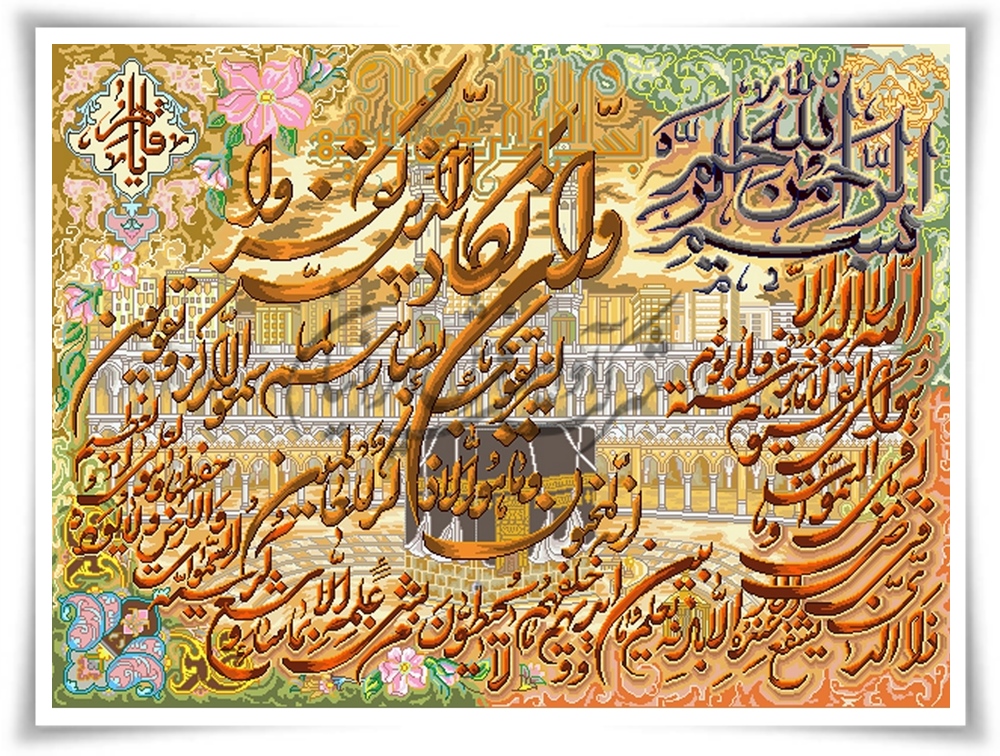 بسم الله الرحمن الرحیم
الله لا اله الا
هو الحی القیوم لا تاخذه سنة ولا نوم
له ما فی السموات وما
فی الارض من
ذا الذی
یشفع عنده الا باذنه یعلم ما بین
ایدیهم وما خلفهم ولا یحیطون بشیء
من علمه الا بما شاء وسع
کرسیه السموات
والارض ولا یؤده
حفظهما وهو العلی
العظیم
وان یکاد الذین کفروا
لیزلقونک بابصارهم لما
سمعوا الذکر ویقولون
انه لمجنون وما هو الا ذکر للعالمین